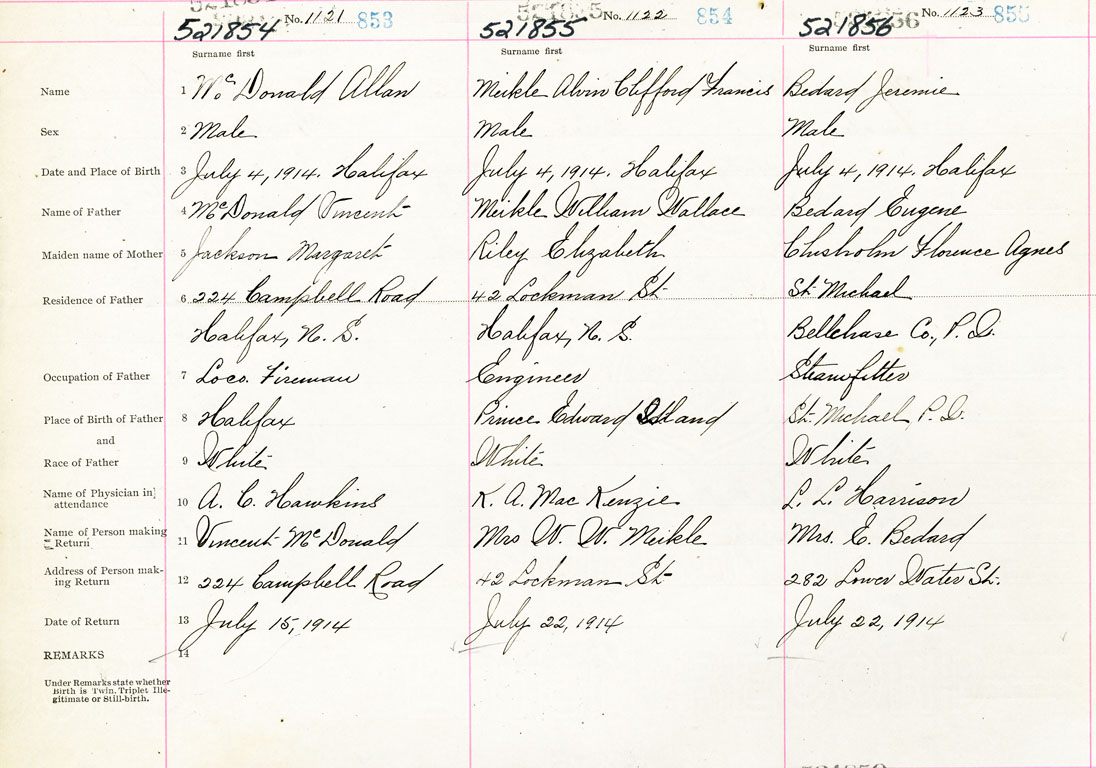 No. 1121 853 No. 1122 854 No. 1123 855
521854 521855 521856
Surname first Surname first Surname first
Name 1 McDonald Allan Meikle Alvin Clifford Francis Bedard Jeremie
Sex 2 Male Male Male
Date and Place of Birth 3 July 4, 1914. Halifax July 4, 1914. Halifax July 4, 1914. Halifax
Name of Father 4 McDonald Vincent Meikle William Wallace Bedard Eugene
Maiden name of Mother 5 Jackson Margaret Riley Elizabeth Chisholm Florence Agnes
Residence of Father 6 224 Campbell Road 42 Lockman St. St. Michael
Halifax, N. S. Halifax, N. S. Bellchase Co., P. Q.
Occupation of Father 7 Loco. Fireman Engineer Steamfitter
Place of Birth of Father 8 Halifax Prince Edward Island St. Michael, P. Q.
and
Race of Father 9 White White White
Name of Physician in attendance 10 A. C. Hawkins K. A. MacKenzie L. L. Harrison
Name of Person making Return 11 Vincent McDonald Mrs W. W. Meikle Mrs. E. Bedard
Address of Person making Return 12 224 Campbell Road 42 Lockman St. 282 Lower Water St.
Date of Return 13 July 15, 1914 July 22, 1914 July 22, 1914
REMARKS 14
Under Remarks state whether
Birth is Twin, Triplet Ille-
gitimate or Still-birth.